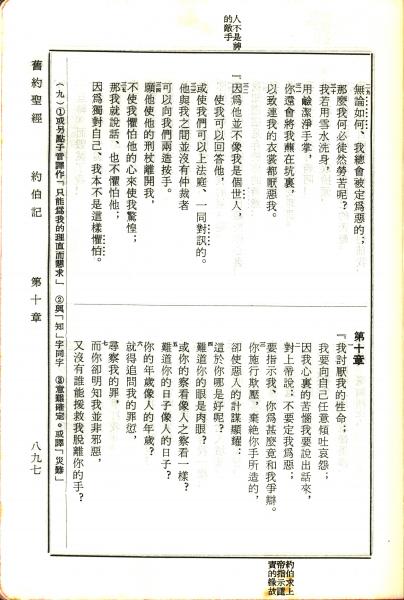 人不是神
的敵手
二九
無論如何、我總會被定爲惡的；
那麼我何必徒然勞苦呢？
三十
我若用雪水洗身，
用鹼潔淨手掌，
三一
你還會將我蘸在坑裏，
以致連我的衣裳都厭惡我。
三二
『因爲他並不像我是個世人，
使我可以回答他，
或使我們可以上法庭、一同對訊的。
三三
他與我之間並沒有仲裁者
可以向我們兩造按手。
三四
願他使他的刑杖離開我，
不使我懼怕他的心來使我驚惶；
三五
那我就說話、也不懼怕他；
因爲獨對自己、我本不是這樣懼怕。
第十章
一
『我討厭我的性命；
我要向自己任意傾吐哀怨；
因我心裏的苦惱我要說出話來，
二
對上帝說：不要定我爲惡；
要指示我、你爲甚麼竟和我爭辯。
三
你施行欺壓，棄絕你手所造的，
卻使惡人的計謀顯耀：
這於你哪是好呢？
四
難道你的眼是肉眼？
或你的察看像人之察看一樣？
五
難道你的日子像人的日子？
你的年歲像人的年歲？
六
就得追問我的罪愆，
尋察我的罪，
七
而你卻明知我並非邪惡，
又沒有誰能援救我脫離你的手？
約伯求上
帝指示譴
責的緣故
（九）①或另點子音譯作「只能爲我的理直而懇求」 ②與「知」字同字 ③意難確定。或譯「災難」
舊約聖經 約伯記 第十章 八九七